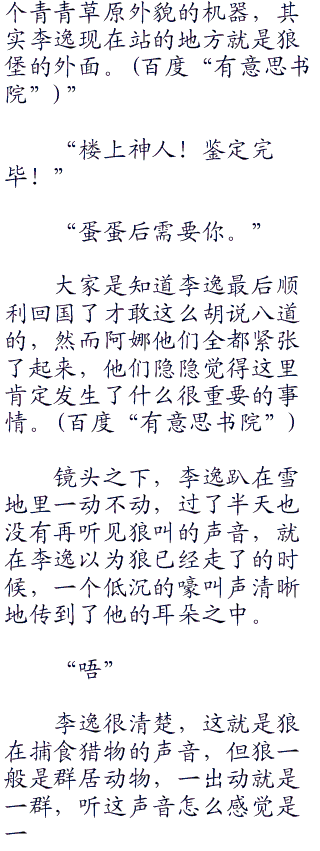 个青青草原外貌的机器，其
实李逸现在站的地方就是狼
堡的外面。(百度“有意思书
院”)”
“楼上神人！鉴定完
毕！”
“蛋蛋后需要你。”
大家是知道李逸最后顺
利回国了才敢这么胡说八道
的，然而阿娜他们全都紧张
了起来，他们隐隐觉得这里
肯定发生了什么很重要的事
情。(百度“有意思书院”)
镜头之下，李逸趴在雪
地里一动不动，过了半天也
没有再听见狼叫的声音，就
在李逸以为狼已经走了的时
候，一个低沉的嚎叫声清晰
地传到了他的耳朵之中。
“唔”
李逸很清楚，这就是狼
在捕食猎物的声音，但狼一
般是群居动物，一出动就是
一群，听这声音怎么感觉是
一